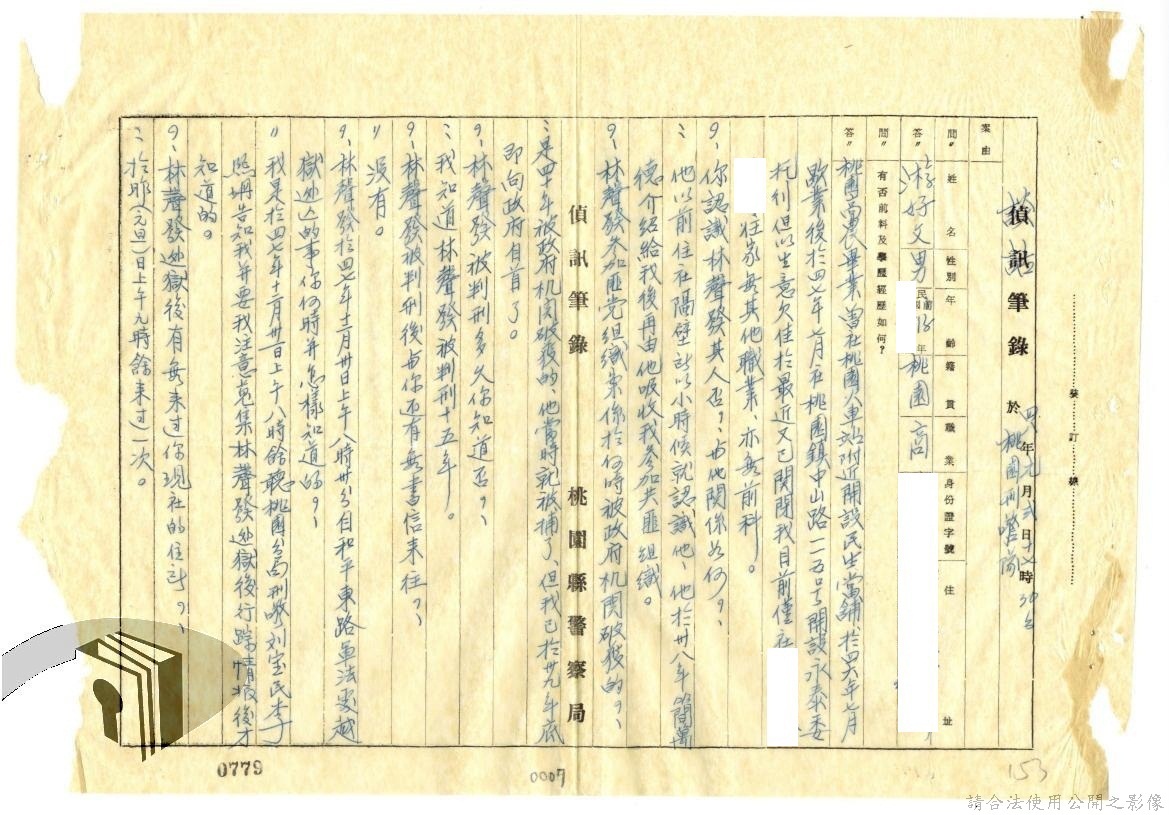 裝訂線
談話
偵訊筆錄 於 四八年元月貳日十七時30分
桃園刑警隊
案由
問〃 姓名 性別 年齡 籍貫 職業 身份證字號 住址
答〃 游好文 男 民國前 年 桃園 商
問〃 有否前科及學歷經歷如何?
答〃 桃園農畢業曾在桃園火車站附近開設民生當舖於四六年七月
歇業後於四七年 月在桃園鎮中山路一一五号開設永泰委
托行但以生意欠佳於最近又已関閉我目前僅在
住家無其他職業、亦無前科。
問、你認識林聲發其人否?、与他関係如何?、
答、他以前住在隔壁所以小時候就認識他、他於卅八年簡萬
德介紹給我後再由他吸收我參加共匪組織。
問、林聲發參加匪党組織案係於何時被政府机関破獲的?、
偵訊筆錄 桃園縣警察局
答、是四十年被政府机関破獲的、他當時就被捕了、但我已於卅九年底
即向政府自首了。
問、林聲發被判刑多久你知道否?、
答、我知道林聲發被判刑十五年。
問、林聲發被判刑後与你还有無書信來往?、
〃 沒有。
問、林聲發於四七年十二月卅日上午八時卅分自和平東路軍法處越
獄逃亡的事你何時并怎樣知道的?、
〃 我是於四七年十二月卅一日上午八時餘聽桃園分局刑警刘宝民李
照堋告知我并要我注意蒐集林聲發逃獄後行踪情报後才
知道的。
問、林聲發逃獄後有無來过你現在的住所?、
答、於昨元旦日上午九時餘來过一次。
0779
0007
153
請合法使用公開之影像